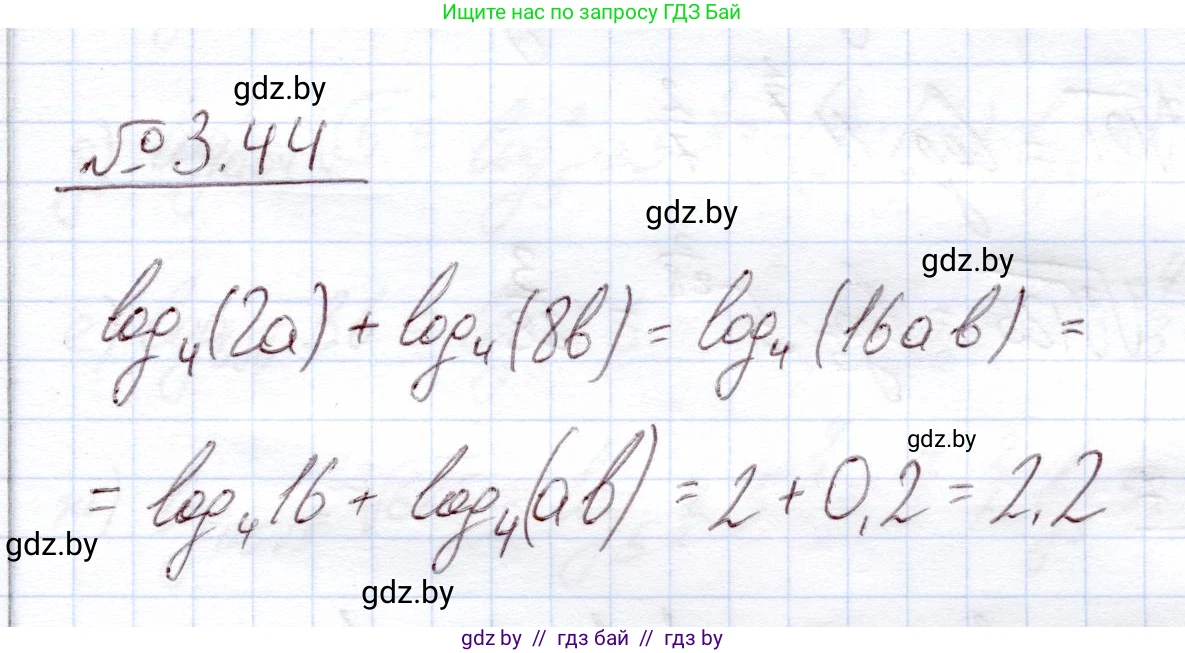 Ищите нас по запросу ГДЗ Бай
gdz.by
№ 3.44
gdz.by
gdz.by
log₄(2a) + log₄(8b) = log₄(16ab) =
gdz.by
= log₄16 + log₄(ab) = 2 + 0,2 = 2,2
gdz.by
gdz.by
gdz by // гдз бай // гдз by